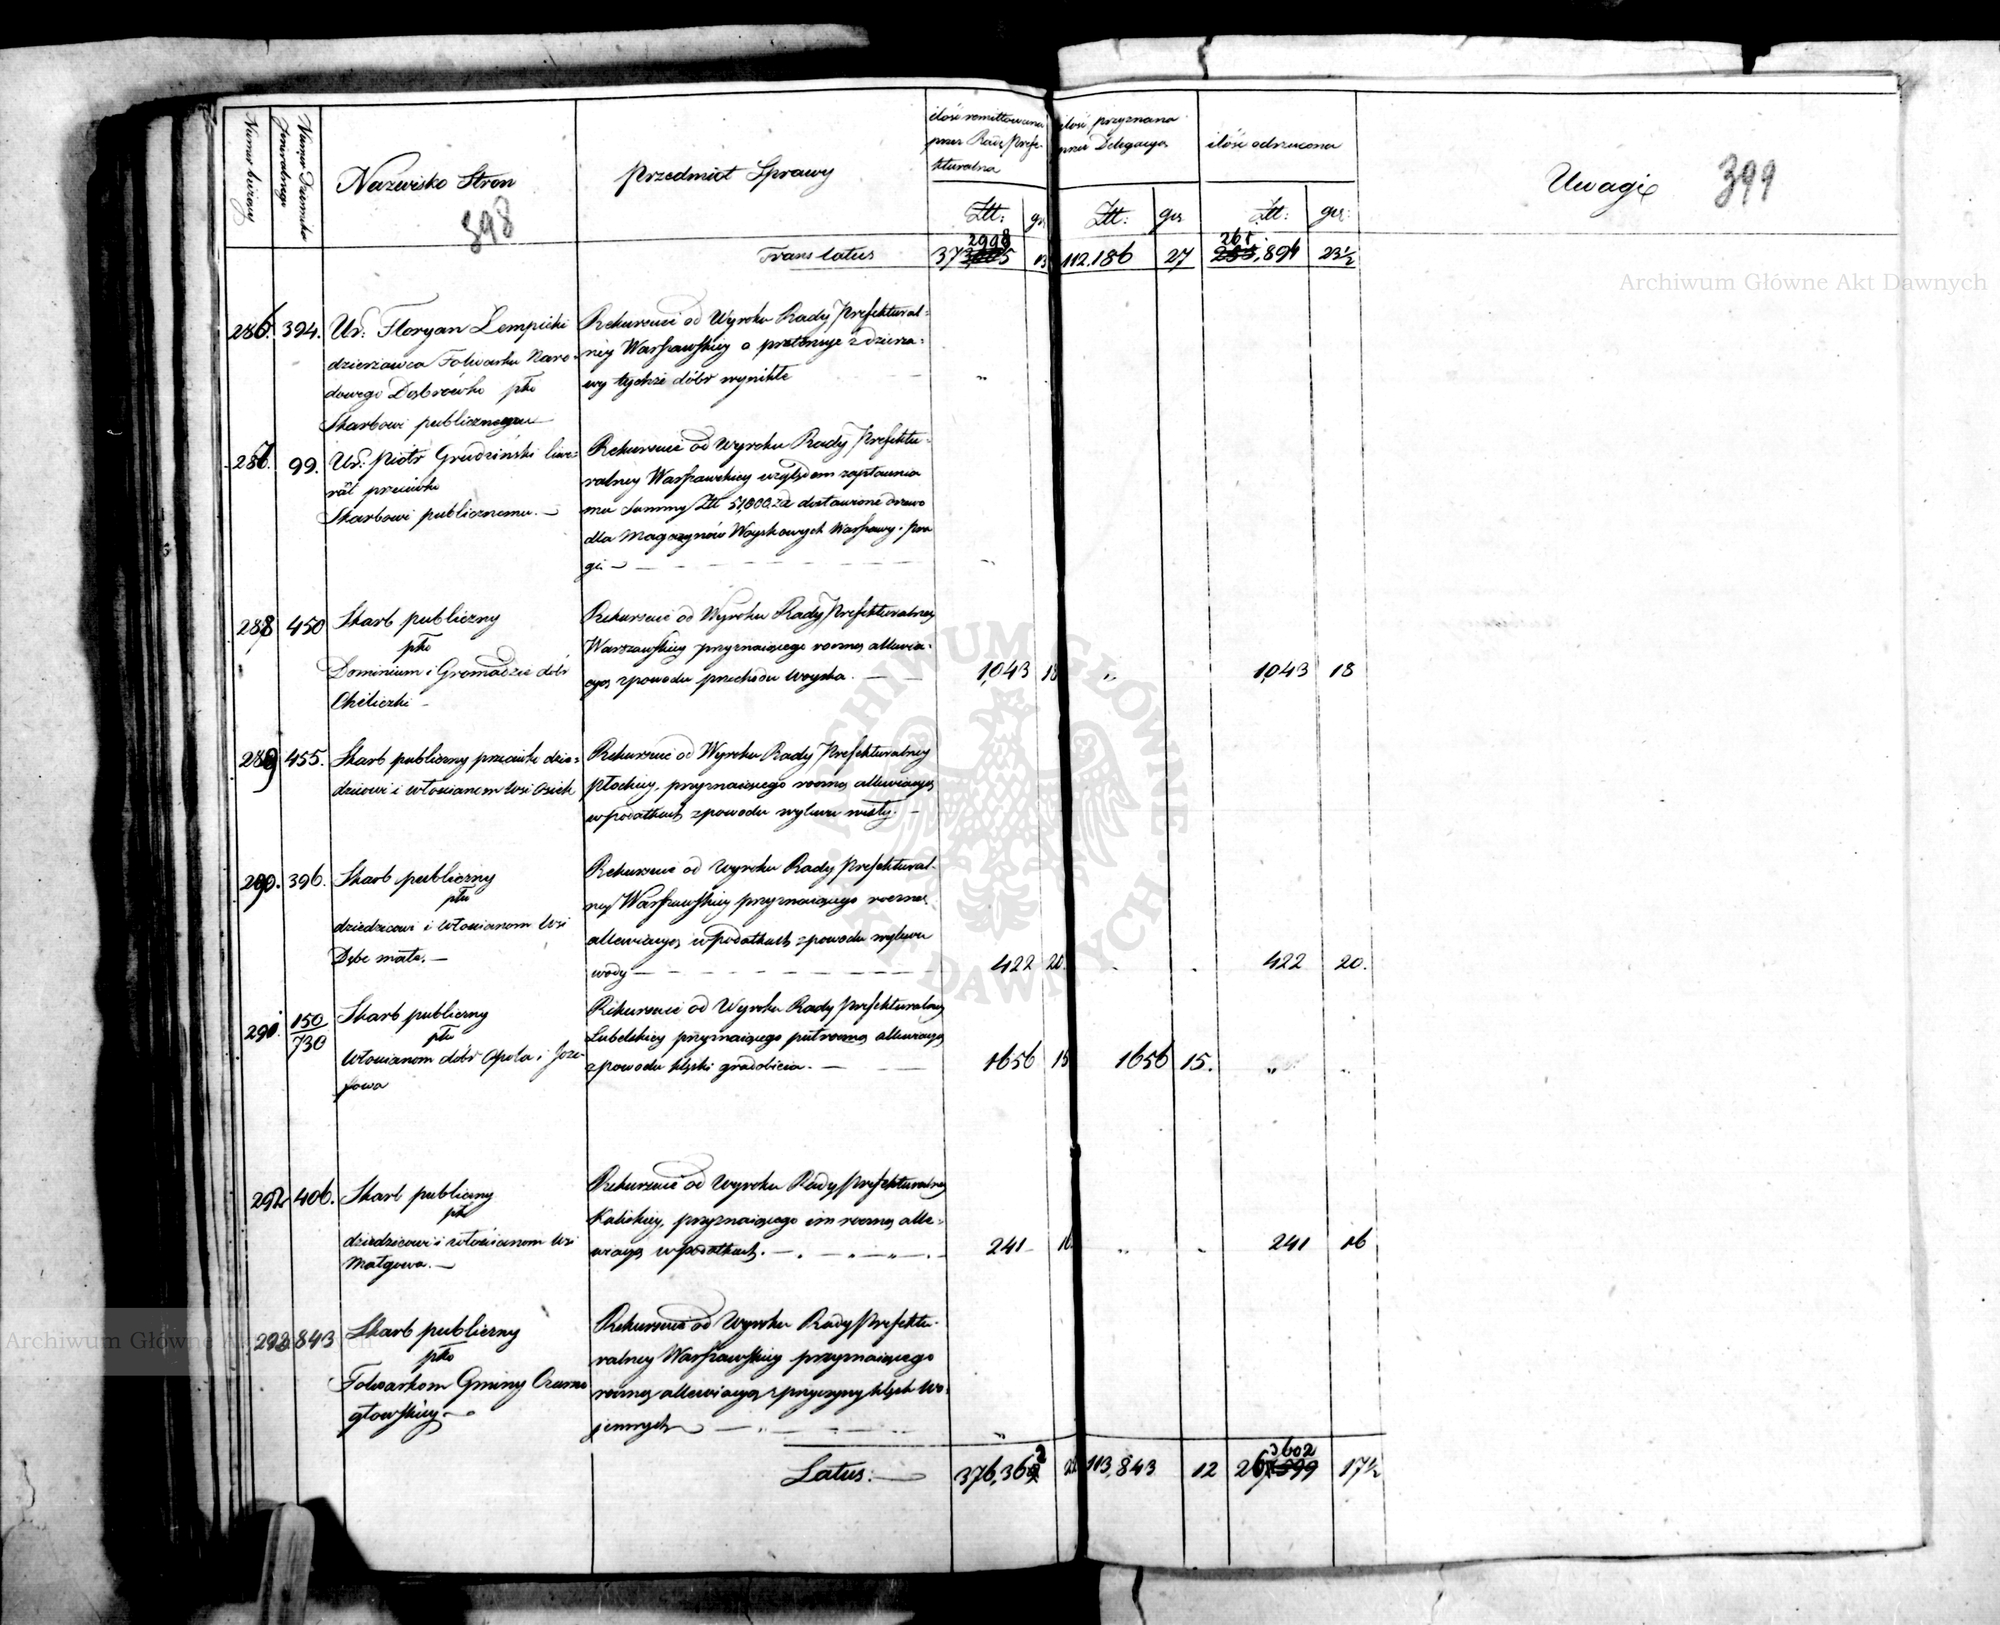 Numer bieżący
Numer Dziennika Jeneralnego
Nazwisko Stron
398
Przedmiot Sprawy
ilość remittowana
przez Radę Prefe-
kturalną
ilość przyznana
przez Delegacyą
ilość odrzucona
Uwagi
399
Ztt: gr Ztt: grs Ztt: grs:
Translatus 2998 13 112.186 27 261,894 23½
286. 394. Ur: Floryan Lempicki
dzierżawca Folwarku Naro-
dowego Dąbrówki pko
Skarbowi publicznemu
Rekursuie od Wyroku Rady Prefektural-
ney Warszawskiey o pretensye z dzierża-
wy tychże dóbr wynikłe „
287. 99. Ur: Piotr Grudziński liwe-
rat przeciwko
Skarbowi publicznemu. —
Rekursuie od Wyroku Rady Prefektu-
ralney Warszawskiey względem zapłacenia
mu Summy Ztt 51,800 za dostawione drzewo
dla Magazynów Woyskowych Warszawy i Pra
gi — „
288 450 Skarb publiczny
pko
Dominium i Gromadzie dóbr
Chyliczki —
Rekursuie od Wyroku Rady Prefekturalney
Warszawskiey przyznaiącego roczną allewia-
cyą z powodu przechodu woyska. — 1,043 18 „ 1,043 18
289 455. Skarb publiczny przeciwko dzie-
dzicowi i włościanom wsi Osiek
Rekursuie od Wyroku Rady Prefekturalney
Płockiey, przyznaiącego roczną allewiacyą
w podatkach z powodu wylewu wisły. —
290. 396. Skarb publiczny
pko
dziedzicowi i włościanom wsi
Dębe małe. —
Rekursuie od Wyroku Rady Prefektural-
ney Warszawskiey przyznaiącego roczną
allewiacyą w podatkach z powodu wylewu
wody — 422 20. 422 20.
291. 150/730 Skarb publiczny
pko
Włościanom dóbr Opola i Joze-
fowa
Rekursuie od Wyroku Rady Prefekturalney
Lubelskiey przyznaiącego półroczną allewiacyą
z powodu klęski gradobicia. — 1656 15 1656 15. „
292 406. Skarb publiczny
pko
dziedzicowi i włościanom wsi
Małgowa. —
Rekursuie od Wyroku Rady Prefekturalney
Kaliskiey, przyznaiącego im roczną alle-
wiacyą w podatkach. — 241 16 „ 241 16
293. 843 Skarb publiczny
pko
Folwarkom Gminy
głowskiey —
Rekursuie od Wyroku Rady Prefektu-
ralney Warszawskiey przyznaiącego
roczną allewiacyą z przyczyny klęsk wo-
jennych — „
Latus: — 376,362 22 113,843 12 3602 17½
Archiwum Główne Akt Dawnych
Archiwum Główne Akt Dawnych
ARCHIWUM GŁÓWNE AKT DAWNYCH